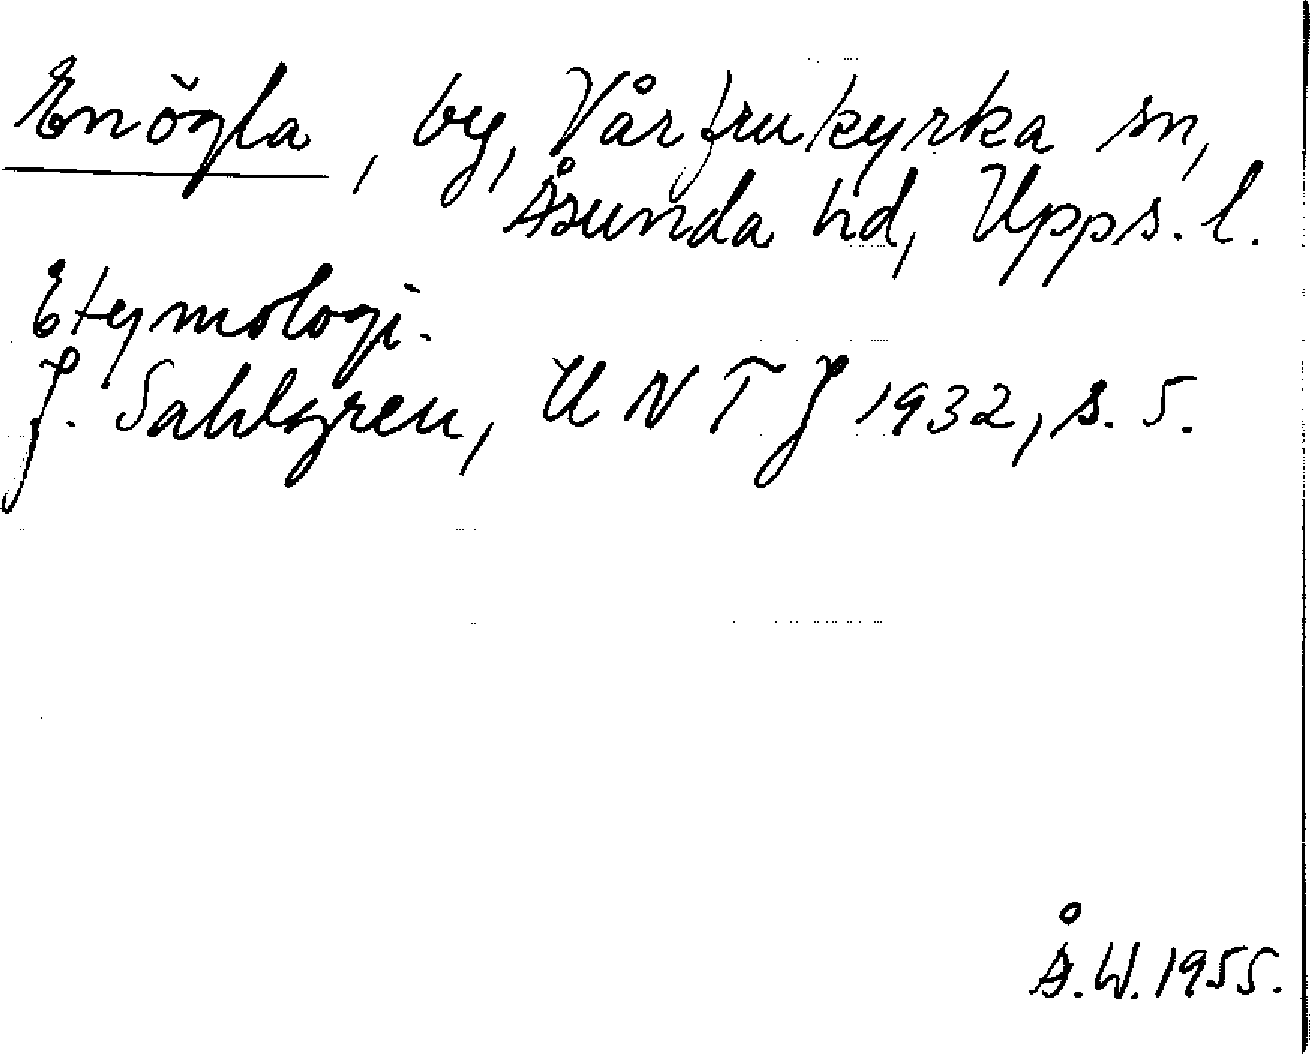 Enögla, by, Vårfrukyrka sn,
Åsunda hd, Upps. l.
Etymologi.
J. Sahlgren, UNTJ 1932, s. 5.
Å.W. 1955.